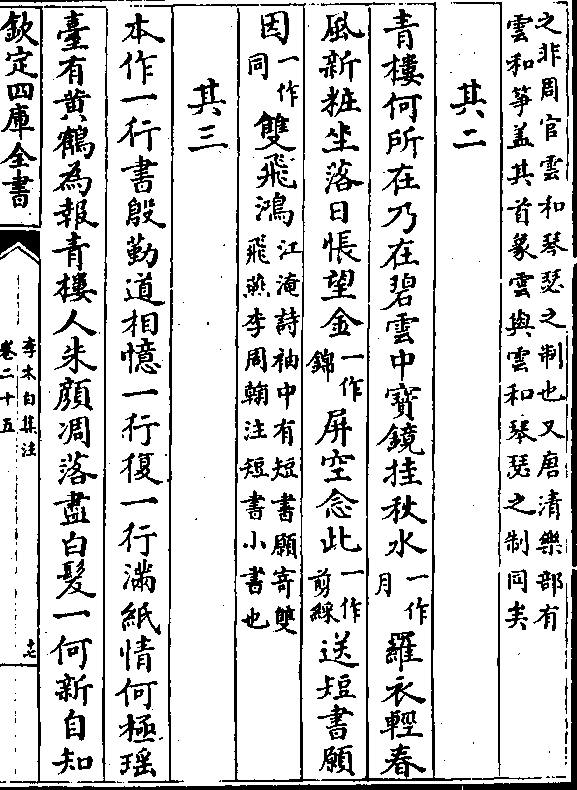 之非周官雲和琴瑟之制也又唐清樂部有
雲和箏盖其首象雲與雲和琴瑟之制同矣
其二
青樓何所在乃在碧雲中寶鏡挂秋水一作月羅衣輕春
風新粧坐落日悵望金一作錦屏空念此一作剪綵送短書願
因一作同雙飛鴻江淹詩袖中有短書願寄雙飛燕李周翰注短書小書也
其三
本作一行書殷勤道相憶一行復一行滿紙情何極瑶
臺有黄鶴為報青樓人朱顔凋落盡白髮一何新自知
欽定四庫全書
李太白集注
卷二十五
十七